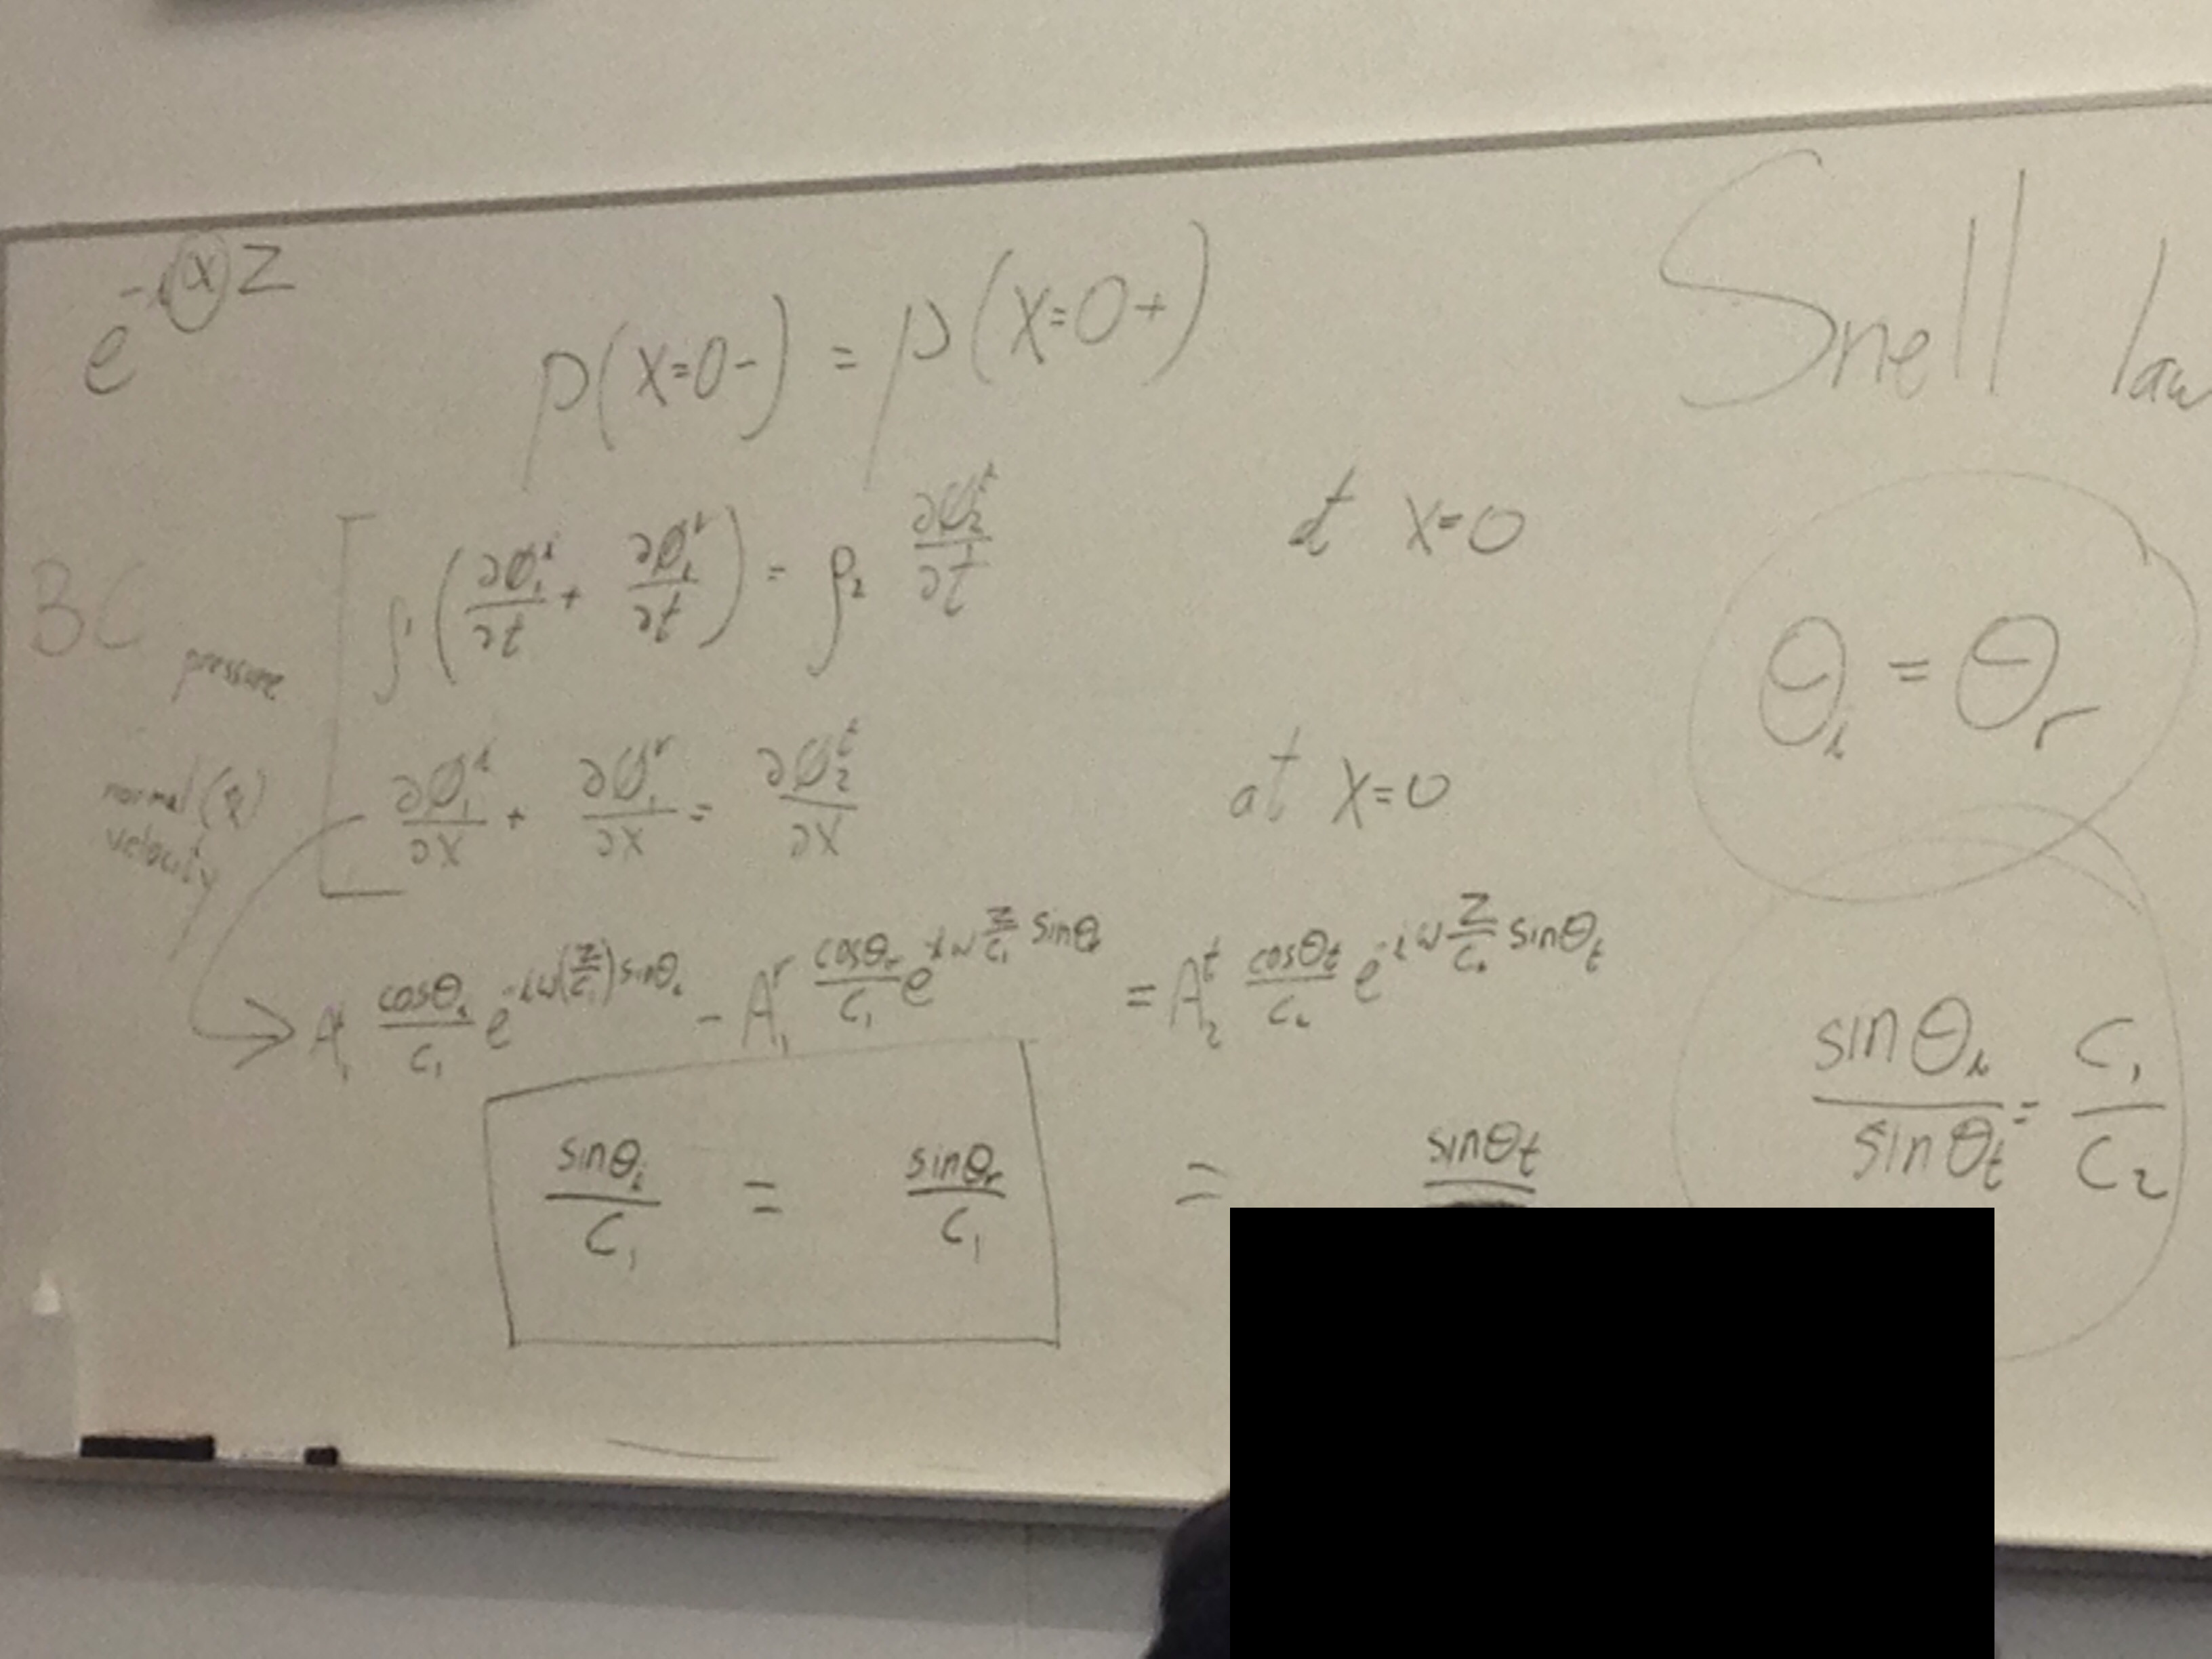 e^{-i(α)z}
p(x=0-) = p(x=0+)
Snell law
BC
pressure
ρ₁(∂Ø₁ⁱ/∂t + ∂Ø₁ʳ/∂t) = ρ₂ ∂Ø₂ᵗ/∂t
at x=0
θᵢ = θᵣ
normal (x)
velocity
∂Ø₁ⁱ/∂x + ∂Ø₁ʳ/∂x = ∂Ø₂ᵗ/∂x
at x=0
A₁ cosθᵢ/c₁ e^{-iω(z/c₁)sinθᵢ} - A₁ʳ cosθᵣ/c₁ e^{-iω z/c₁ sinθᵣ} = A₂ᵗ cosθt/c₂ e^{-iω z/c₂ sinθt}
sinθᵢ/sinθt = c₁/c₂
sinθᵢ/c₁ = sinθᵣ/c₁ = sinθt